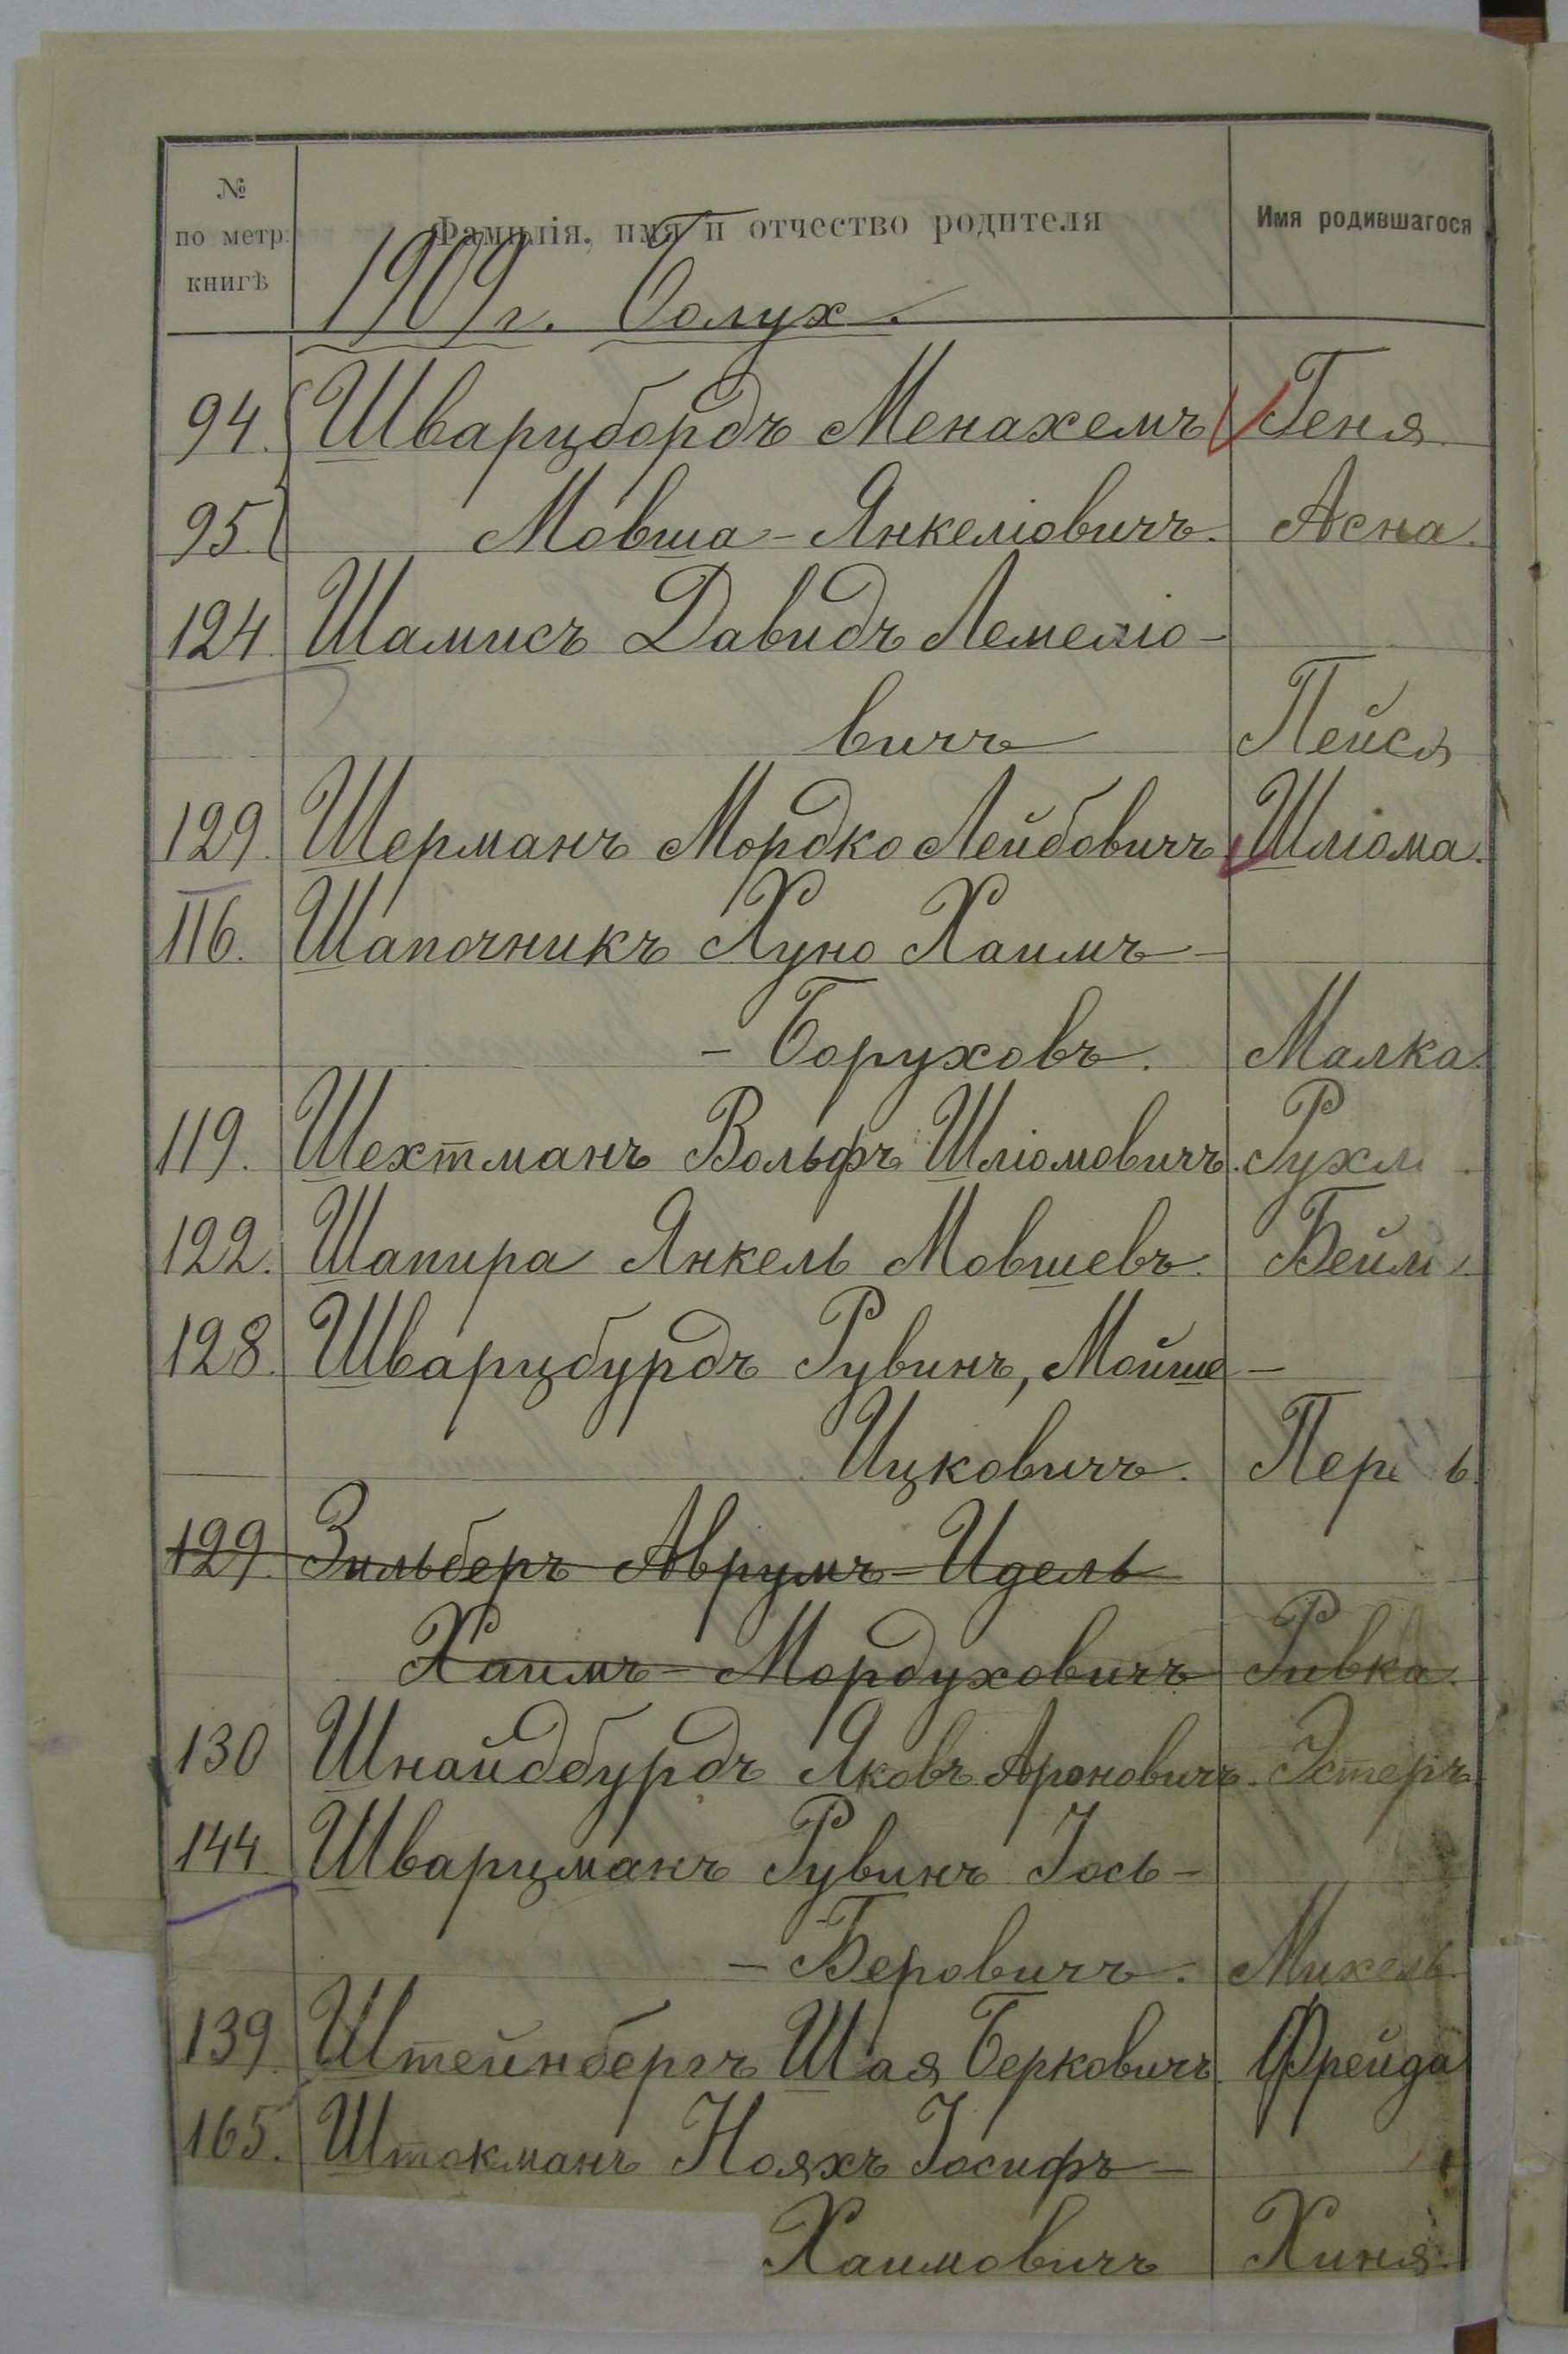 № по метр. книгѣ Фамилія, имя и отчество родителя Имя родившагося
1909 г. Болух.
94. Шварцбордъ Менахемъ Геня
95. Мовша-Янкеліовичъ. Асна.
124 Шамисъ Давидъ Лемеліо-
вичъ Пейся
129. Шерманъ Мордко Лейбовичъ Шліома.
116. Шапочникъ Хуно Хаимъ-
-Боруховъ. Малка.
119. Шехтманъ Вольфъ Шліомовичъ. Рухл
122. Шапира Янкель Мовшевъ. Бейл
128. Шварцбурдъ Рувинъ, Мойше-
Ицковичъ. Пер ь.
129. Зильберъ Аврумъ-Идель
Хаимъ-Мордуховичъ Ривка.
130 Шнайдбурдъ Яковъ Ароновичъ. Эстеръ.
144. Шварцманъ Рувинъ Іось-
-Беровичъ. Михель.
139. Штейнбергъ Шая Берковичъ. Фрейда
165. Штокманъ Нояхъ Іосифъ-
Хаимовичъ Хиня.